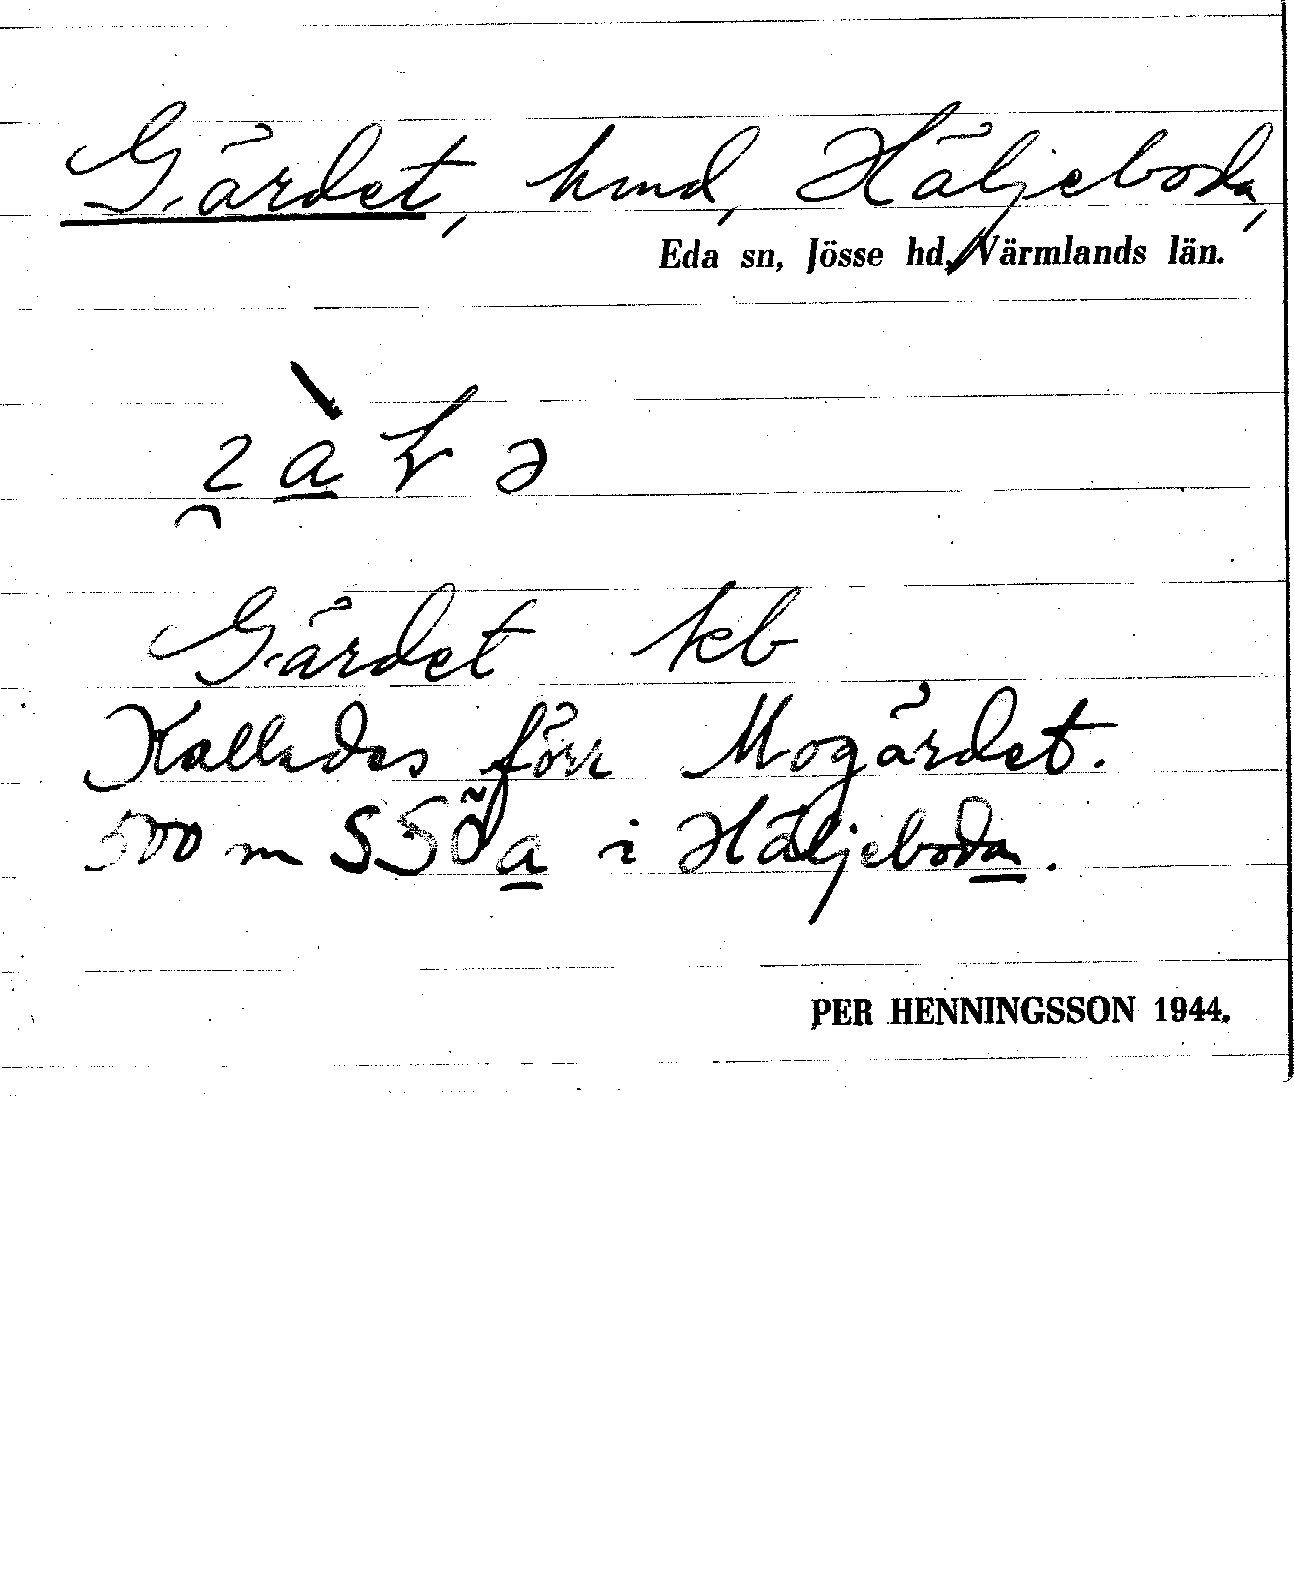 Gärdet, hmd, Häljeboda,
Eda sn, Jösse hd, Värmlands län.
Gärdet kb
Kallades förr Mogärdet.
500 m SSÖ a i Häljebodan.
PER HENNINGSSON 1944.